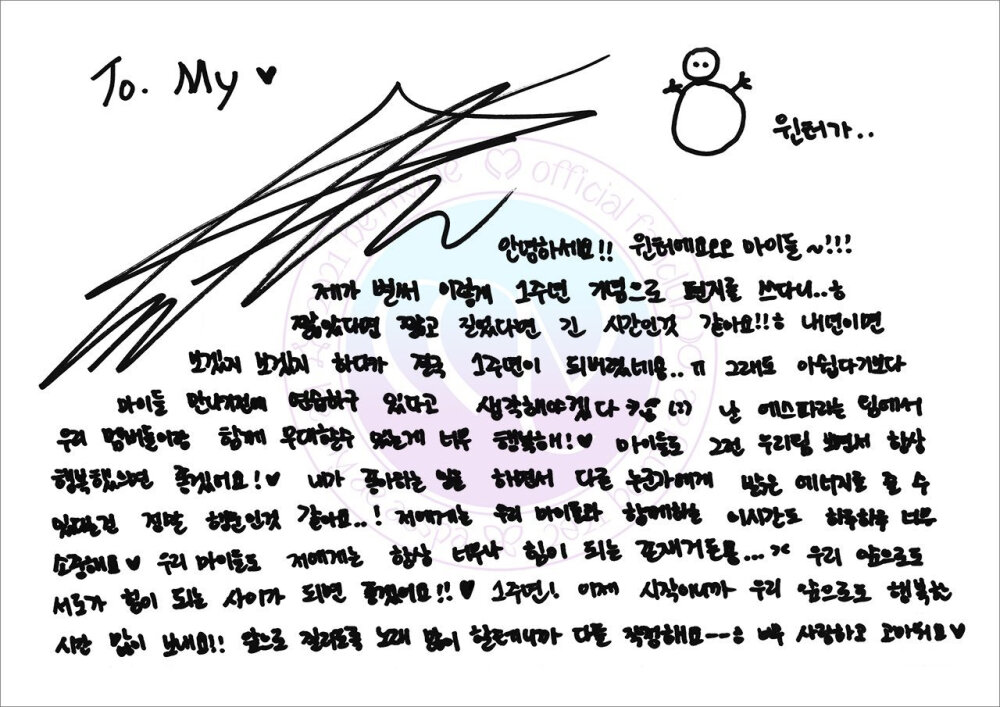 To. My ♥
윈터가..
official fanclub
안녕하세요!! 윈터에요오오 마이들~!!!
제가 벌써 이렇게 1주년 기념으로 편지를 쓰다니..ㅎ
짧았다면 짧고 길었다면 긴 시간인것 같아요!!ㅎ 내년이면
보겠지 보겠지 하다가 결국 1주년이 되버렸네용..ㅠ 그래도 아쉽다기보다
마이들 만나기전에 연습하구 있다고 생각해야겠다 난 에스파라는 팀에서
우리 멤버들이랑 함께 무대할수 있는게 너무 행복해!♥ 마이들도 그런 우리팀 보면서 항상
행복했으면 좋겠어요!♥ 내가 좋아하는 일을 하면서 다른 누군가에게 밝은 에너지를 줄 수
있다는건 정말 행운인것 같아요..! 저에게는 우리 마이들와 함께하는 이시간도 하루하루 너무
소중해요♥ 우리 마이들도 저에게는 항상 너무나 힘이 되는 존재거든용... 우리 앞으로도
서로가 힘이 되는 사이가 되면 좋겠어요!!♥ 1주년! 이제 시작이니까 우리 앞으로도 행복한
시간 많이 보내요!! 앞으로 질리도록 노래 많이 할테니까 다들 걱정해요--ㅎ 너무 사랑하고 고마워요♥